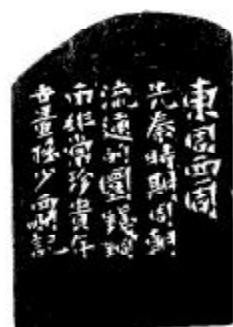 東周西周
先秦時期周朝
流通的圜錢銅
而非常珍貴存
世量稀少